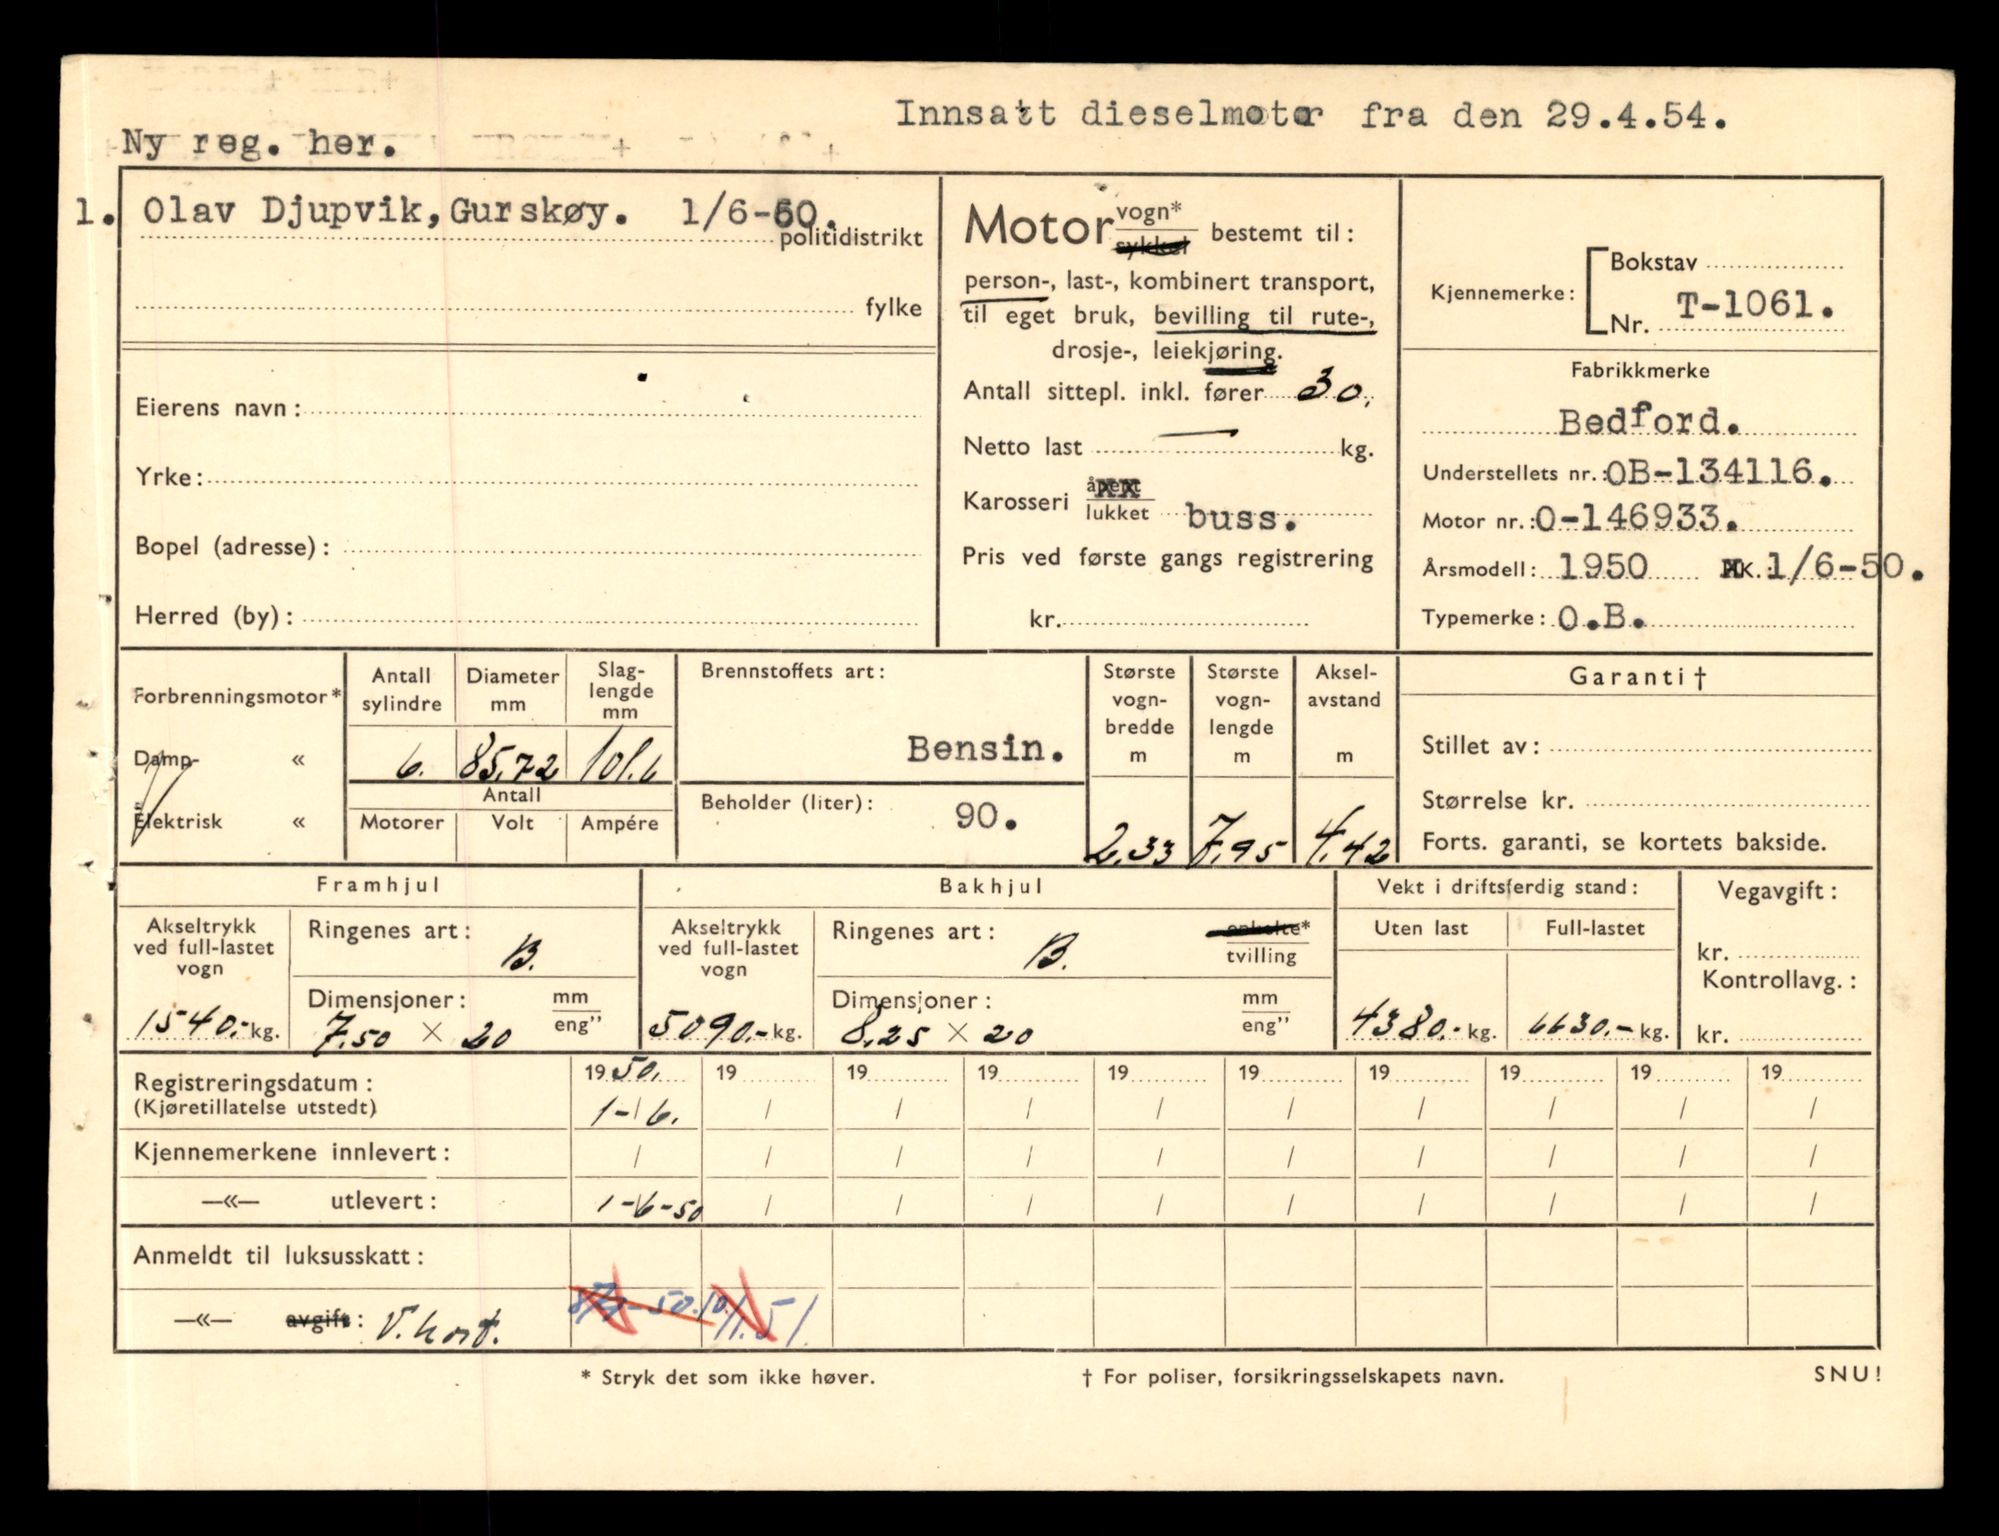 Innsatt dieselmotor fra den 29.4.54.
Ny reg. her.
1. Olav Djupvik, Gurskøy. 1/6-50.
politidistrikt
fylke
Eierens navn:
Yrke:
Bopel (adresse):
Herred (by):
Motor vogn* sykkel bestemt til:
person-, last-, kombinert transport,
til eget bruk, bevilling til rute-,
drosje-, leiekjøring.
Antall sittepl. inkl. fører 30.
Netto last — kg.
Karosseri åpent lukket buss.
Pris ved første gangs registrering
kr.
Kjennemerke: Bokstav
Nr. T-1061.
Fabrikkmerke
Bedford.
Understellets nr.: OB-134116.
Motor nr.: O-146933.
Årsmodell: 1950 HK. 1/6-50.
Typemerke: O.B.
Forbrenningsmotor*
Damp- «
Elektrisk «
Antall sylindre
6.
Diameter mm
85.72
Slag-lengde mm
101.6
Antall
Motorer Volt Ampére
Brennstoffets art:
Bensin.
Beholder (liter): 90.
Største vogn-bredde m
2.33
Største vogn-lengde m
7.95
Aksel-avstand m
4.42
Garanti †
Stillet av:
Størrelse kr.
Forts. garanti, se kortets bakside.
Framhjul
Akseltrykk ved full-lastet vogn
1540.- kg.
Ringenes art: B.
Dimensjoner: mm eng"
7.50 × 20
Bakhjul
Akseltrykk ved full-lastet vogn
5090.- kg.
Ringenes art: B. enkelte* tvilling
Dimensjoner: mm eng"
8.25 × 20
Vekt i driftsferdig stand:
Uten last Full-lastet
4380.- kg. 6630.- kg.
Vegavgift:
kr.
Kontrollavg.:
kr.
Registreringsdatum: 1950. 19 19 19 19 19 19 19 19 19
(Kjøretillatelse utstedt) 1-6. / / / / / / / / /
Kjennemerkene innlevert: / / / / / / / / / /
—«— utlevert: 1-6-50 / / / / / / / / /
Anmeldt til luksusskatt:
—«— avgift: V.kort. 50. 10/1.51
* Stryk det som ikke høver. † For poliser, forsikringsselskapets navn. SNU!